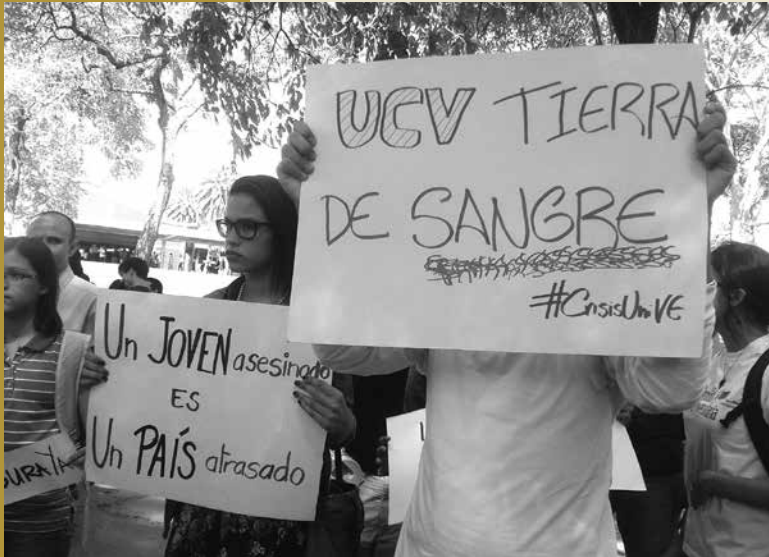 UCV TIERRA
DE SANGRE
#CrisisUniVE
Un JOVEN asesinado
ES
Un PAÍS atrasado